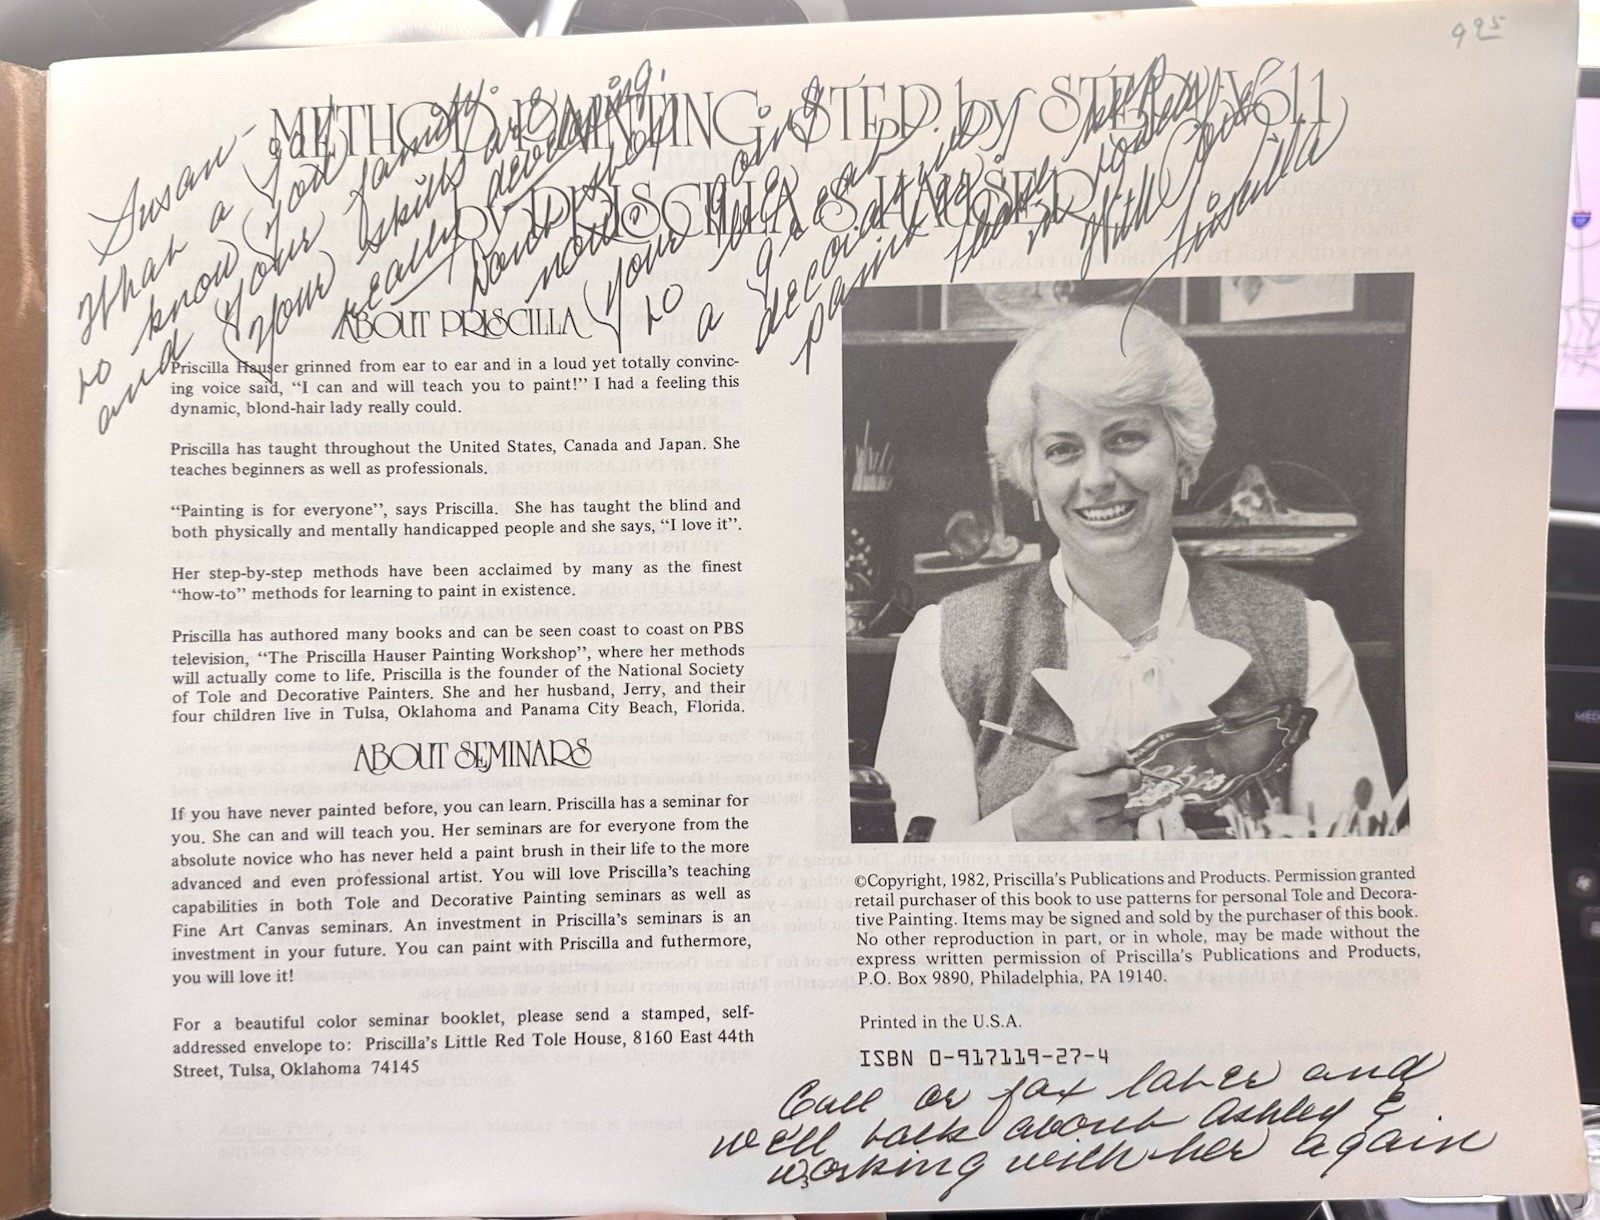 9 95
METHOD PAINTING, STEP by STEP, Vol 1
by PRISCILLA S. HAUSER
Susan -
What a joy
to know you
and your family.
Your skills are
really developing.
Don't stop
now.
Your going
to be
a great
decorative
painter
Please keep
in touch
With Love
Priscilla
ABOUT PRISCILLA
Priscilla Hauser grinned from ear to ear and in a loud yet totally convinc-
ing voice said, “I can and will teach you to paint!” I had a feeling this
dynamic, blond-hair lady really could.
Priscilla has taught throughout the United States, Canada and Japan. She
teaches beginners as well as professionals.
“Painting is for everyone”, says Priscilla. She has taught the blind and
both physically and mentally handicapped people and she says, “I love it”.
Her step-by-step methods have been acclaimed by many as the finest
“how-to” methods for learning to paint in existence.
Priscilla has authored many books and can be seen coast to coast on PBS
television, “The Priscilla Hauser Painting Workshop”, where her methods
will actually come to life. Priscilla is the founder of the National Society
of Tole and Decorative Painters. She and her husband, Jerry, and their
four children live in Tulsa, Oklahoma and Panama City Beach, Florida.
ABOUT SEMINARS
If you have never painted before, you can learn. Priscilla has a seminar for
you. She can and will teach you. Her seminars are for everyone from the
absolute novice who has never held a paint brush in their life to the more
advanced and even professional artist. You will love Priscilla’s teaching
capabilities in both Tole and Decorative Painting seminars as well as
Fine Art Canvas seminars. An investment in Priscilla’s seminars is an
investment in your future. You can paint with Priscilla and futhermore,
you will love it!
For a beautiful color seminar booklet, please send a stamped, self-
addressed envelope to: Priscilla’s Little Red Tole House, 8160 East 44th
Street, Tulsa, Oklahoma 74145
©Copyright, 1982, Priscilla’s Publications and Products. Permission granted
retail purchaser of this book to use patterns for personal Tole and Decora-
tive Painting. Items may be signed and sold by the purchaser of this book.
No other reproduction in part, or in whole, may be made without the
express written permission of Priscilla’s Publications and Products,
P.O. Box 9890, Philadelphia, PA 19140.
Printed in the U.S.A.
ISBN 0-917119-27-4
Call or fax later and
we'll talk about Ashley &
working with her again
3